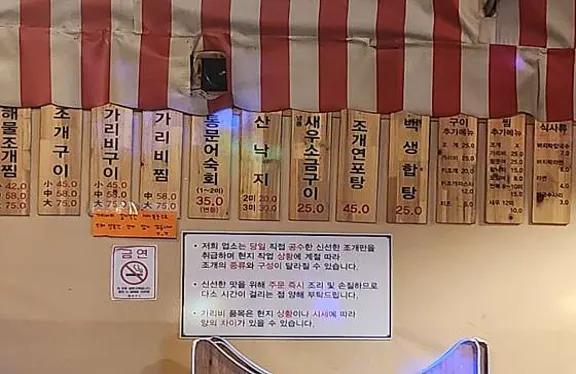 해물조개찜
小 42.0
中 58.0
大 75.0
조개구이
小 45.0
中 58.0
大 75.0
가리비구이
小 45.0
中 58.0
大 75.0
가리비찜
中 58.0
大 75.0
돌문어숙회
(1~2미)
35.0
(변동)
산낙지
2미 20.0
3미 30.0
새우소금구이
25.0
조개연포탕
45.0
백생합탕
25.0
구이
추가메뉴
조개 25.0
가리비 25.0
키조개
찜
추가메뉴
조개
새우 12미
10.0
식사류
바지락칼국수
라면
공기밥
금연
• 저희 업소는 당일 직접 공수한 신선한 조개만을
취급하며 현지 작업 상황에 계절 따라
조개의 종류와 구성이 달라질 수 있습니다.
• 신선한 맛을 위해 주문 즉시 조리 및 손질하므로
다소 시간이 걸리는 점 양해 부탁드립니다.
• 가리비 품목은 현지 상황이나 시세에 따라
양의 차이가 있을 수 있습니다.